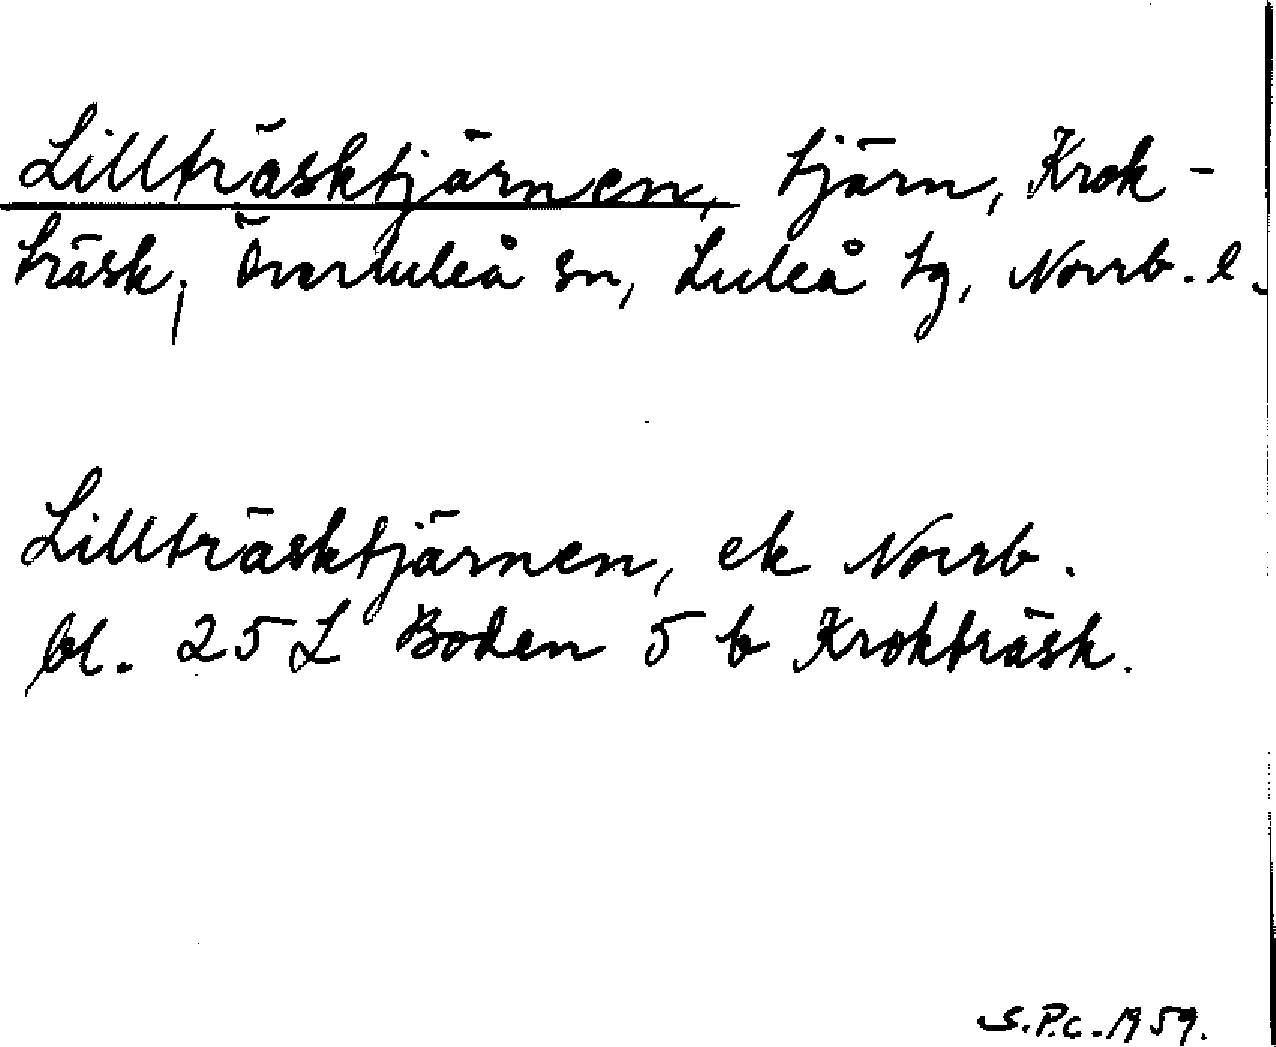 Lillträsktjärnen, tjärn, Krok-
träsk, Överluleå sn, Luleå tg, Norrb. l.
Lillträsktjärnen, ek Norrb.
bl. 25 L Boden 5 b Krokträsk.
S.P.C. 1959.